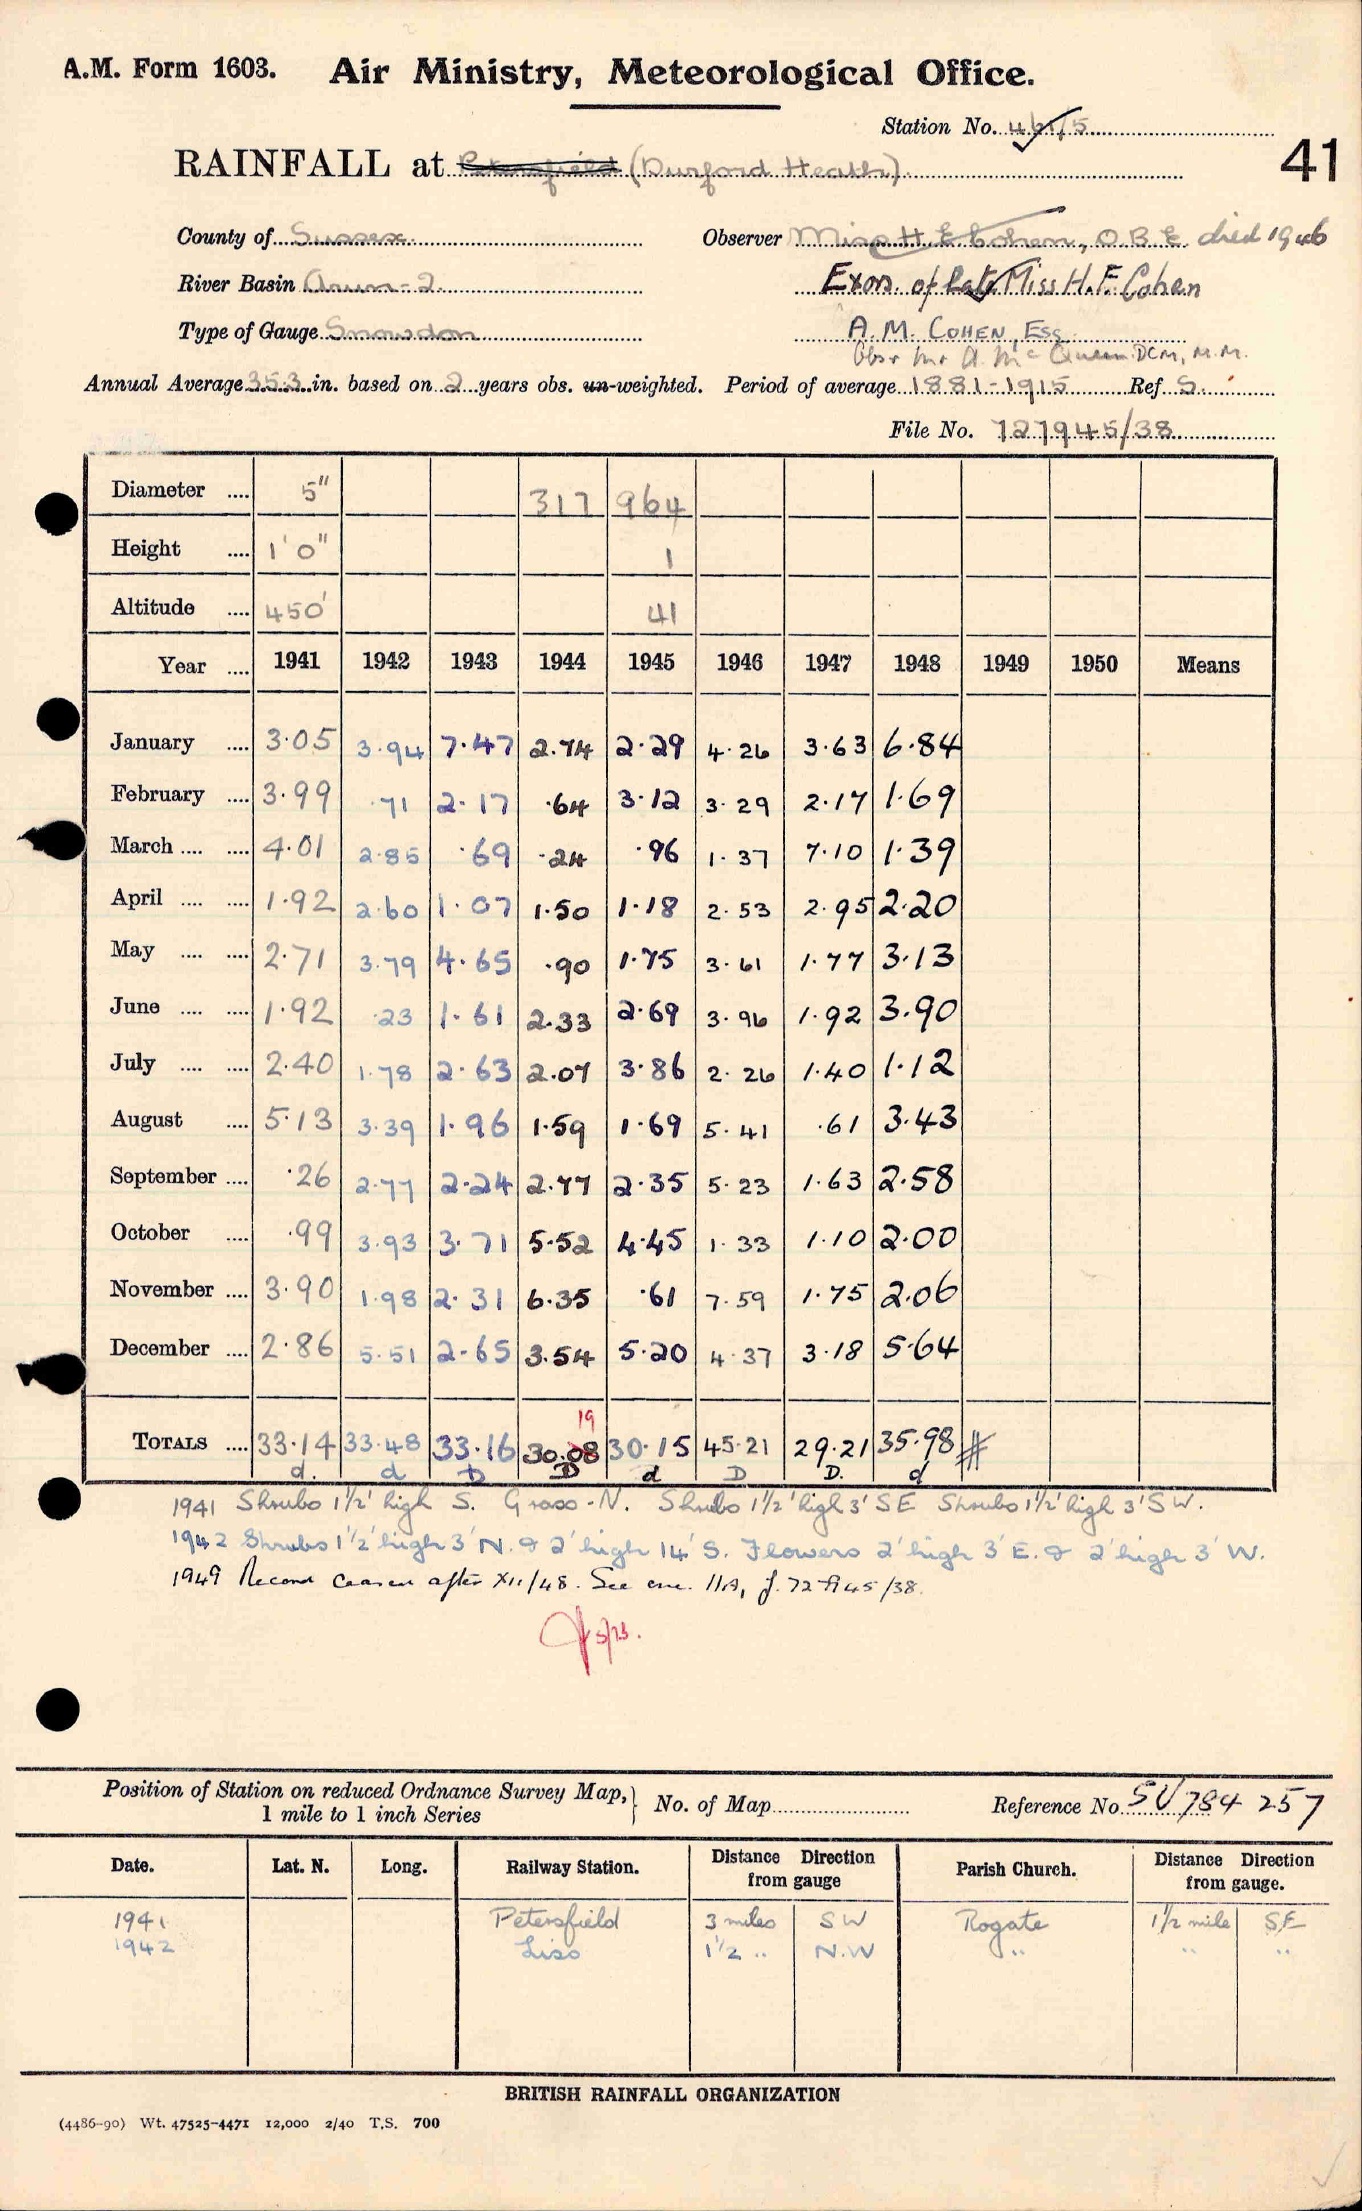 A.M. Form 1603. Air Ministry, Meteorological Office.
Station No. 461/5
41
RAINFALL at Petersfield (Durford Heath)
County of Sussex Observer Miss H E Cohen, O B E died 1946
River Basin Arun-2 Exors. of late Miss H.F. Cohen
Type of Gauge Snowdon A.M. COHEN, Esq
Obsr Mr A. McQueen DCM, M.M.
Annual Average 35.3 in. based on 2 years obs. un-weighted. Period of average 1881-1915 Ref S.
File No. 727945/38
Diameter .... 5" 317 964
Height .... 1' 0" 1
Altitude .... 450' 41
Year .... 1941 1942 1943 1944 1945 1946 1947 1948 1949 1950 Means
January .... 3.05 3.94 7.47 2.74 2.29 4.26 3.63 6.84
February .... 3.99 .71 2.17 .64 3.12 3.29 2.17 1.69
March .... .... 4.01 2.85 .69 .24 .96 1.37 7.10 1.39
April .... .... 1.92 2.60 1.07 1.50 1.18 2.53 2.95 2.20
May .... .... 2.71 3.79 4.65 .90 1.75 3.61 1.77 3.13
June .... .... 1.92 .23 1.61 2.33 2.69 3.96 1.92 3.90
July .... .... 2.40 1.78 2.63 2.07 3.86 2.26 1.40 1.12
August .... 5.13 3.39 1.96 1.59 1.69 5.41 .61 3.43
September .... .26 2.77 2.24 2.77 2.35 5.23 1.63 2.58
October .... .99 3.93 3.71 5.52 4.45 1.33 1.10 2.00
November .... 3.90 1.98 2.31 6.35 .61 7.59 1.75 2.06
December .... 2.86 5.51 2.65 3.54 5.20 4.37 3.18 5.64
19
TOTALS .... 33.14 33.48 33.16 30.08 30.15 45.21 29.21 35.98 #
d. d D D d D D. d
1941 Shrubs 1½' high S. Grass-N. Shrubs 1½' high 3' SE Shrubs 1½' high 3' SW.
1942 Shrubs 1½' high 3' N. & 2' high 14' S. Flowers 2' high 3' E. & 2' high 3' W.
1949 Record ceased after XII/48. See enc. 11A, f. 727945/38.
5/73.
Position of Station on reduced Ordnance Survey Map, No. of Map Reference No. SU 784 257
1 mile to 1 inch Series
Date. Lat. N. Long. Railway Station. Distance Direction from gauge Parish Church. Distance Direction from gauge.
1941 Petersfield 3 miles SW Rogate 1½ mile SE
1942 Liss 1½ " N.W " " "
BRITISH RAINFALL ORGANIZATION
(4486-90) Wt. 47525-4471 12,000 2/40 T.S. 700